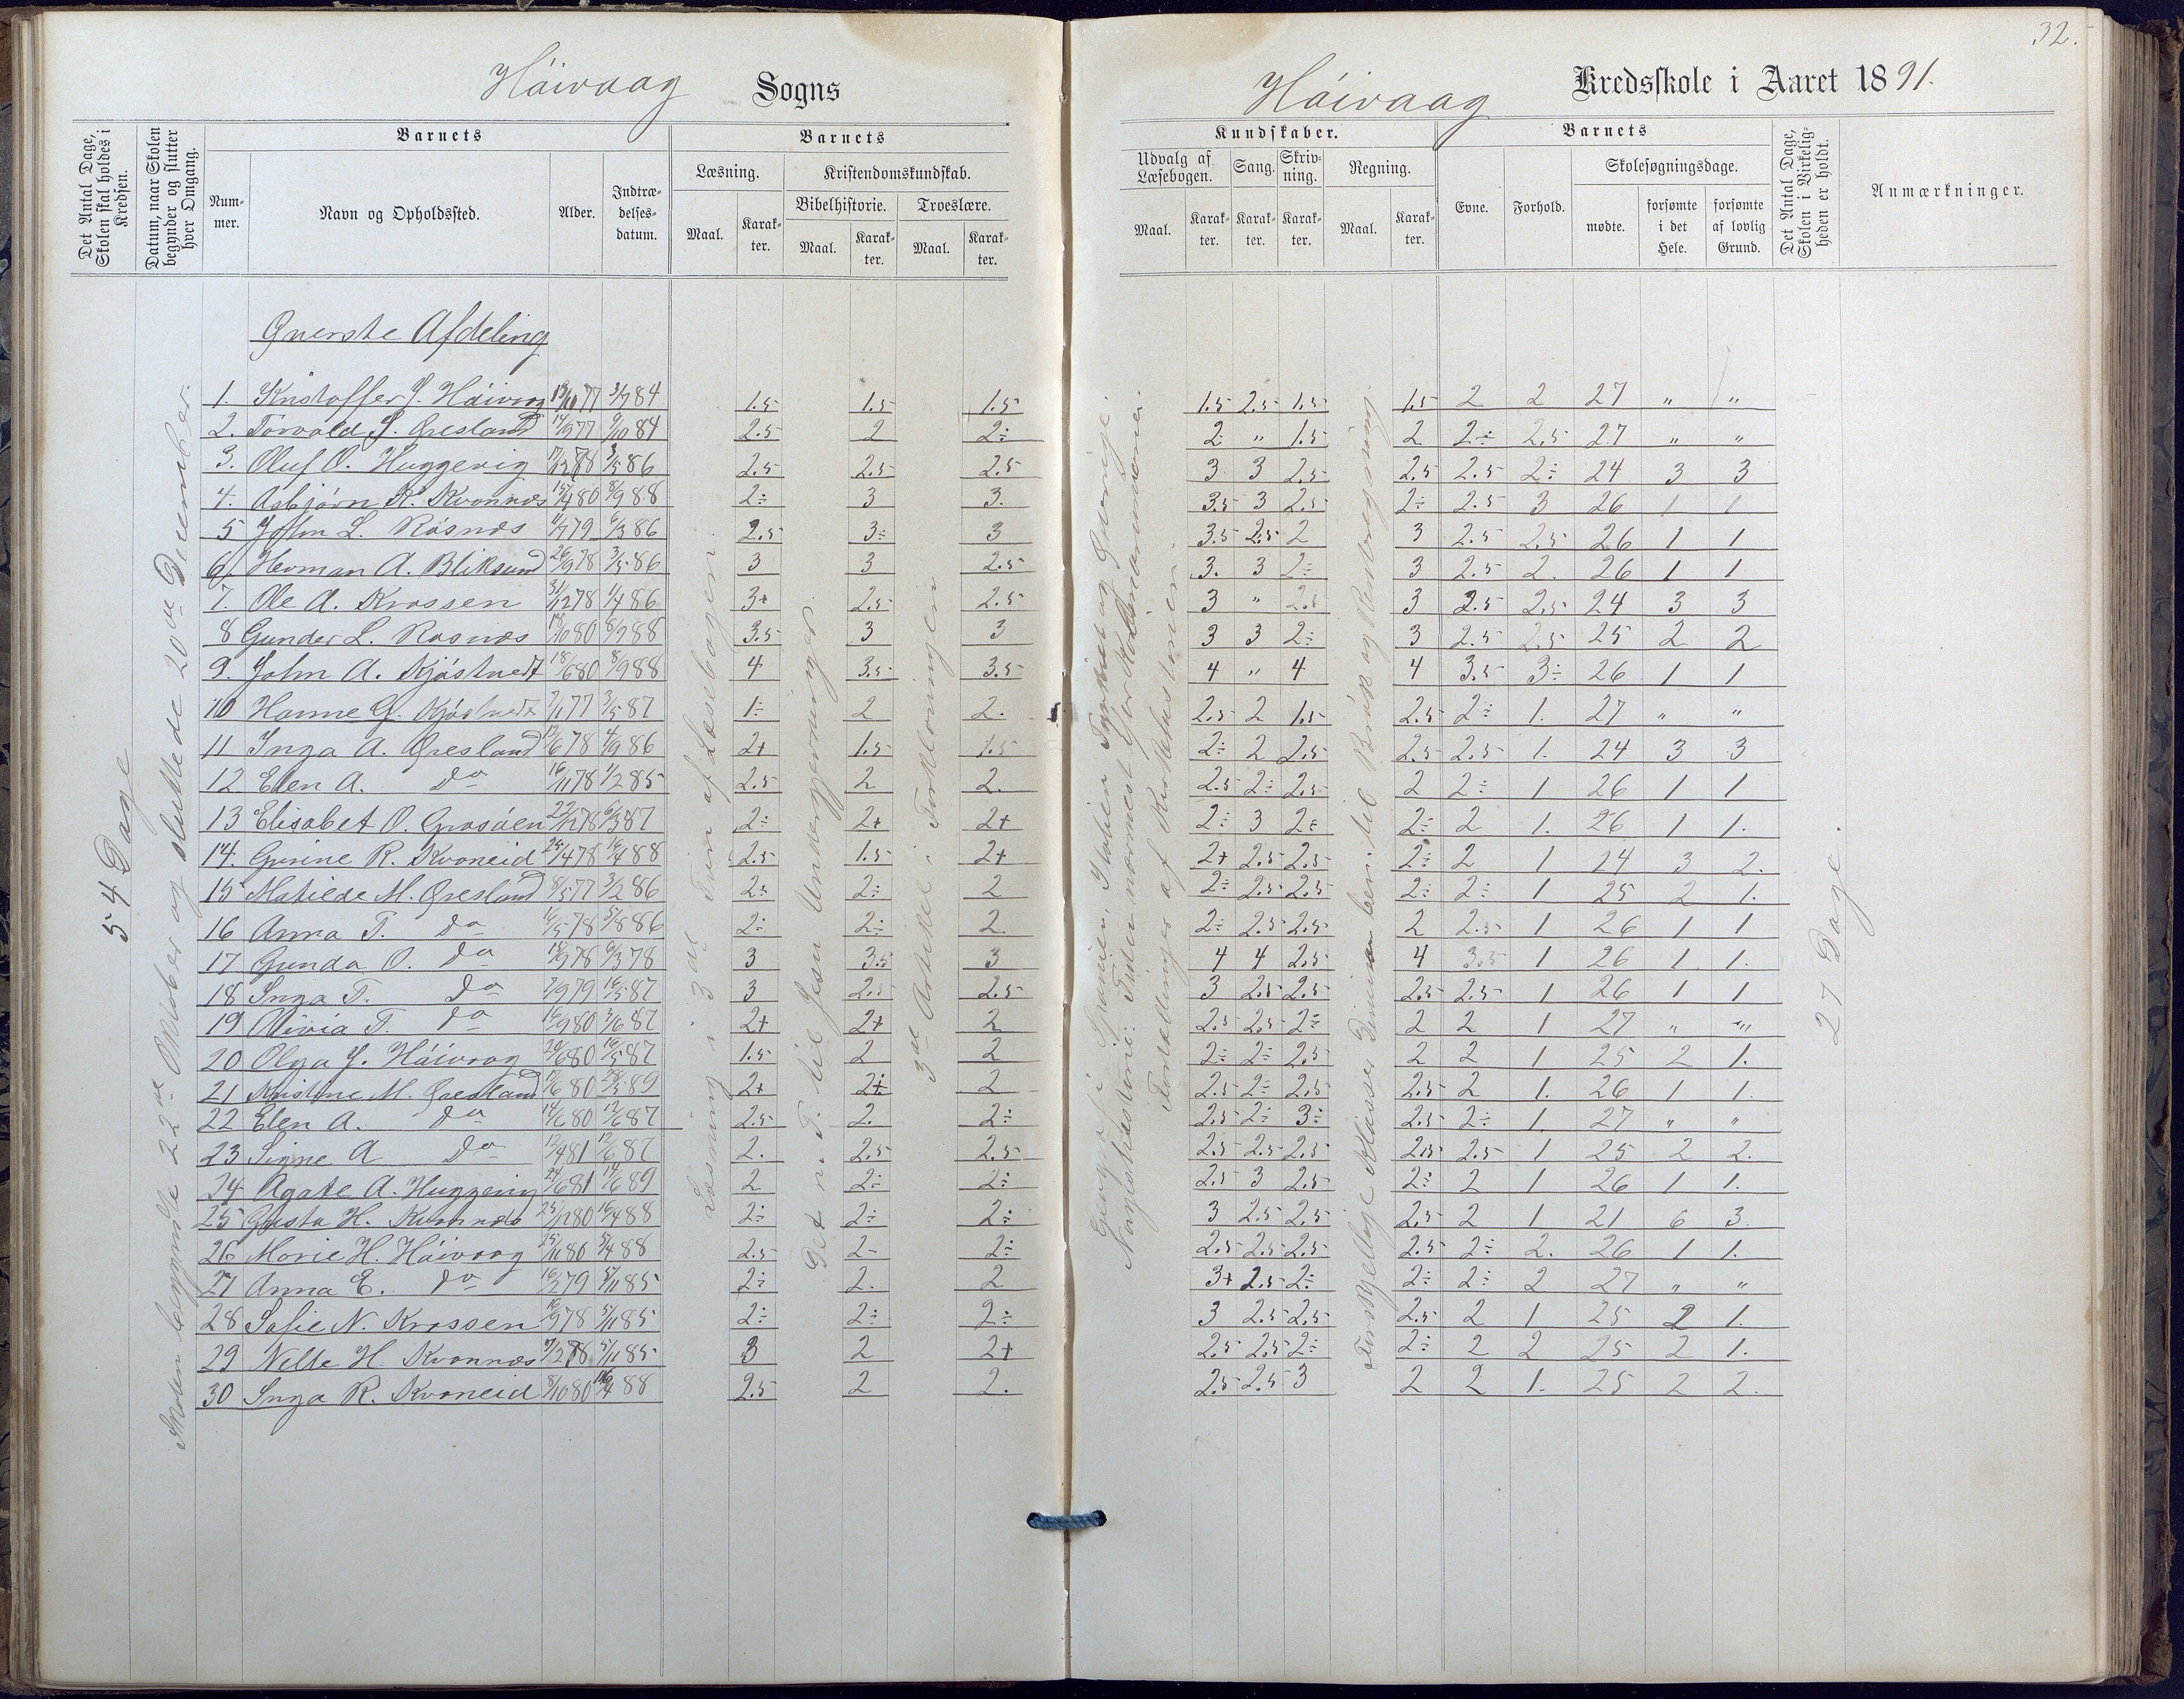 32.
Håivaag Sogns
Håivaag Kredsskole i Aaret 1891.
Det Antal Dage, Skolen skal holdes i Kredsen.
Datum, naar Skolen begynder og slutter hver Omgang.
Barnets
Nummer.
Navn og Opholdssted.
Alder.
Indtrædelsesdatum.
Barnets
Læsning.
Kristendomskundskab.
Bibelhistorie.
Troeslære.
Maal.
Karakter.
Maal.
Karakter.
Maal.
Karakter.
Kundskaber.
Udvalg af Læsebogen.
Sang.
Skrivning.
Regning.
Maal.
Karakter.
Karakter.
Karakter.
Maal.
Karakter.
Barnets
Evne.
Forhold.
Skolesøgningsdage.
mødte.
forsømte i det Hele.
forsømte af lovlig Grund.
Det Antal Dage, Skolen i Virkeligheden er holdt.
Anmærkninger.
54 Dage
Skolen begyndte 22de Oktober og sluttede 20de December.
Læsning i 3die Trin af Læsebogen.
Det n. T. til Jesu Undergjerninger.
3die Artikel i Forklaringen
27 Dage.
Øverste Afdeling
1. Kristoffer J. Håivaag 13/10 77 3/7 84 1.5 1.5 1.5 1.5 2.5 1.5 1.5 2 2 27 " "
2. Torvald S. Øresland 14/9 77 9/10 84 2.5 2 2÷ 2 " 1.5 2 2÷ 2.5 27 " "
3. Oluf O. Huggevig 17/12 78 3/5 86 2.5 2.5 2.5 3 3 2.5 2.5 2.5 2÷ 24 3 3
4. Asbjørn K. Kvannæs 15/4 80 8/9 88 2÷ 3 3. 3.5 3 2.5 2÷ 2.5 3 26 1 1
5 John L. Røsnæs 11/7 79 6/3 86 2.5 3÷ 3 3.5 2.5 2 3 2.5 2.5 26 1 1
6. Herman A. Bliksund 26/9 78 3/5 86 3 3 2.5 3. 3 2÷ 3 2.5 2. 26 1 1
7. Ole A. Krossen 31/12 78 1/4 86 3+ 2.5 2.5 3 " 2.5 3 2.5 2.5 24 3 3
8 Gunder L. Røsnæs 19/10 80 8/9 88 3.5 3 3 3 3 2÷ 3 2.5 2.5 25 2 2
9. John A. Kjøstvedt 18/6 80 8/9 88 4 3.5 3.5 4 " 4 4 3.5 3÷ 26 1 1
10 Hanne G. Kjøstvedt 7/1 77 3/5 87 1÷ 2 2. 2.5 2 1.5 2.5 2÷ 1. 27 " "
11 Inga A. Øresland 12/6 78 4/9 86 2+ 1.5 1.5 2÷ 2 2.5 2.5 2.5 1. 24 3 3
12 Elen A. Do 16/11 78 1/2 85 2.5 2 2. 2.5 2÷ 2.5 2 2÷ 1 26 1 1
13 Elisabet O. Grosåen 22/12 78 6/3 87 2÷ 2+ 2+ 2÷ 3 2÷ 2÷ 2 1. 26 1 1.
14. Gurine R. Kvaneid 25/4 78 16/4 88 2.5 1.5 2+ 2+ 2.5 2.5 2÷ 2 1 24 3 2.
15 Matilde M. Øresland 8/5 77 3/2 86 2÷ 2÷ 2 2÷ 2.5 2.5 2÷ 2÷ 1 25 2 1.
16 Anna T. Do 14/5 78 5/8 86 2÷ 2÷ 2. 2÷ 2.5 2.5 2 2.5 1 26 1 1
17 Gunda O. Do 18/9 78 6/3 78 3 3.5 3 4 4 2.5 4 3.5 1 26 1 1.
18 Inga T. Do 7/9 79 16/5 87 3 2.5 2.5 3 2.5 2.5 2.5 2.5 1 26 1 1
19 Olivia T. Do 16/9 80 3/6 87 2+ 2+ 2 2.5 2.5 2÷ 2 2 1 27 " "
20 Olga J. Håivaag 20/6 80 16/5 87 1.5 2 2 2÷ 2÷ 2.5 2 2 1 25 2 1.
21 Kristine M. Øresland 17/6 80 28/5 89 2+ 2+ 2 2.5 2÷ 2.5 2.5 2 1. 26 1 1.
22 Elen A. Do 14/6 80 12/6 87 2.5 2. 2÷ 2.5 2÷ 3÷ 2.5 2÷ 1. 27 " "
23 Signe A Do 12/4 81 12/6 87 2. 2.5 2.5 2.5 2.5 2.5 2.5 2.5 1 25 2 2.
24 Agate A. Huggevig 24/6 81 14/6 89 2 2÷ 2÷ 2.5 3 2.5 2÷ 2 1 26 1 1.
25 Gusta H. Kvannæs 25/12 80 16/4 88 2÷ 2÷ 2÷ 3 2.5 2.5 2.5 2 1 21 6 3.
26 Marie H. Håivaag 25/11 80 5/4 88 2.5 2- 2÷ 2.5 2.5 2.5 2.5 2÷ 2. 26 1 1.
27 Anna E. Do 16/2 79 5/11 85 2÷ 2. 2 3+ 2.5 2÷ 2÷ 2÷ 2 27 " "
28 Sofie N. Krossen 16/9 78 5/11 85 2÷ 2÷ 2÷ 3 2.5 2.5 2.5 2 1 25 2 1.
29 Nelle H. Kvannæs 7/2 78 5/11 85 3 2 2+ 2.5 2.5 2÷ 2÷ 2 2 25 2 1.
30 Inga R. Kvaneid 8/10 80 16/4 88 2.5 2 2. 2.5 2.5 3 2 2 1. 25 2 2.